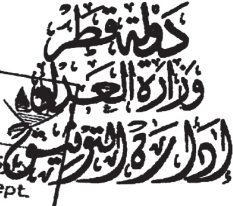 دولة قطر
وزارة العدل
إدارة التوثيق
ept